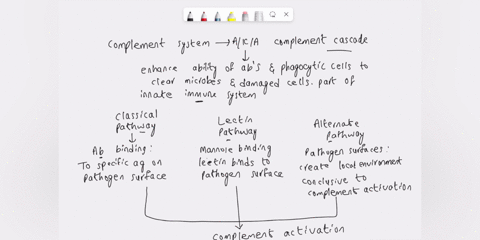 complement system → A/K/A complement cascade
enhance ability of ab's & phagocytic cells to
clear microbes & damaged cells. part of
innate immune system
Classical
Pathway
Ab binding:
To specific ag on
Pathogen surface
Lectin
Pathway
Mannose binding
lectin binds to
Pathogen surface
Alternate
Pathway
Pathogen surfaces:
create local environment
conclusive to
complement activation
complement activation